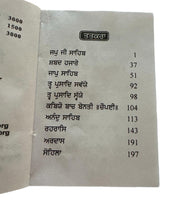 3000
1500
3000
ਤਤਕਰਾ
ਜਪੁ ਜੀ ਸਾਹਿਬ 1
ਸ਼ਬਦ ਹਜਾਰੇ 37
ਜਾਪੁ ਸਾਹਿਬ 51
ਤ੍ਵ ਪ੍ਰਸਾਦਿ ਸਵੱਯੇ 92
ਤ੍ਵ ਪ੍ਰਸਾਦਿ ਸ੍ਵੱਯੇ 98
ਕਬਿਯੋ ਬਾਚ ਬੇਨਤੀ ॥ਚੌਪਈ॥ 104
ਅਨੰਦੁ ਸਾਹਿਬ 113
ਰਹਰਾਸਿ 143
ਅਰਦਾਸ 191
ਸੋਹਿਲਾ 197
org
org